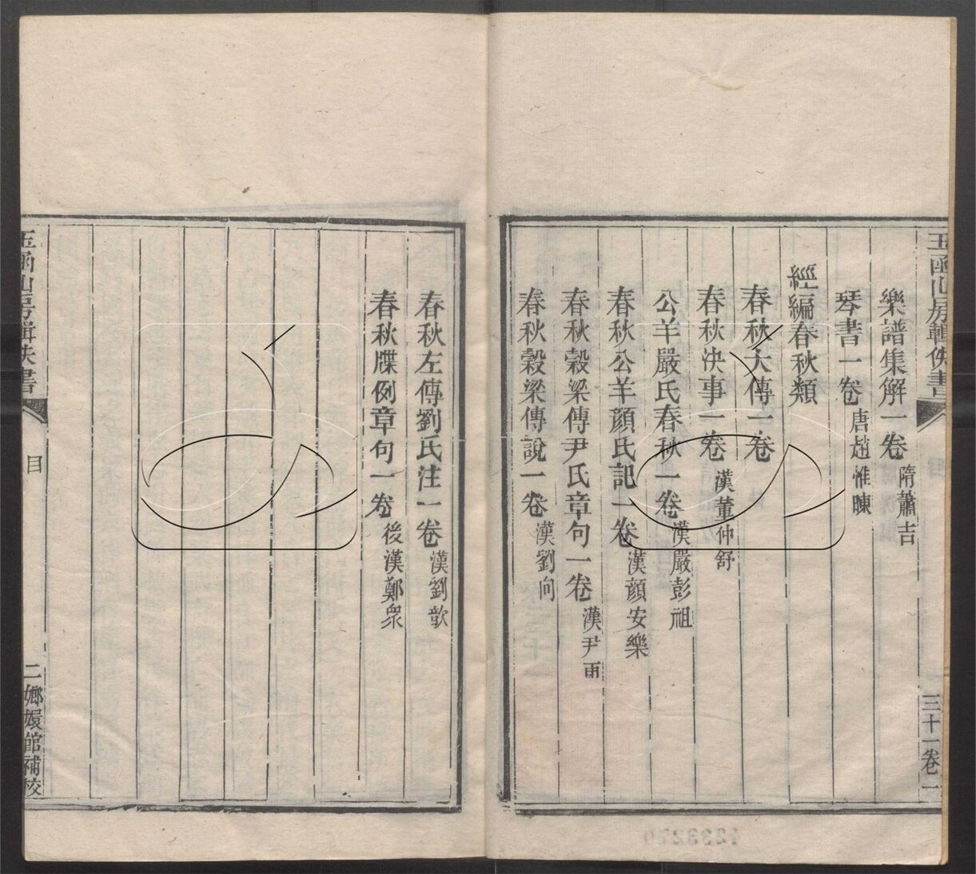 玉函山房輯佚書
三十一卷 一
樂譜集解一卷 隋蕭吉
琴書一卷 唐趙惟暕
經編春秋類
春秋大傳一卷
春秋決事一卷 漢董仲舒
公羊嚴氏春秋一卷 漢嚴彭祖
春秋公羊顏氏記一卷 漢顏安樂
春秋穀梁傳尹氏章句一卷 漢尹更
春秋穀梁傳說一卷 漢劉向
春秋左傳劉氏注一卷 漢劉歆
春秋牒例章句一卷 後漢鄭衆
玉函山房輯佚書
目
二 嫏嬛館補校